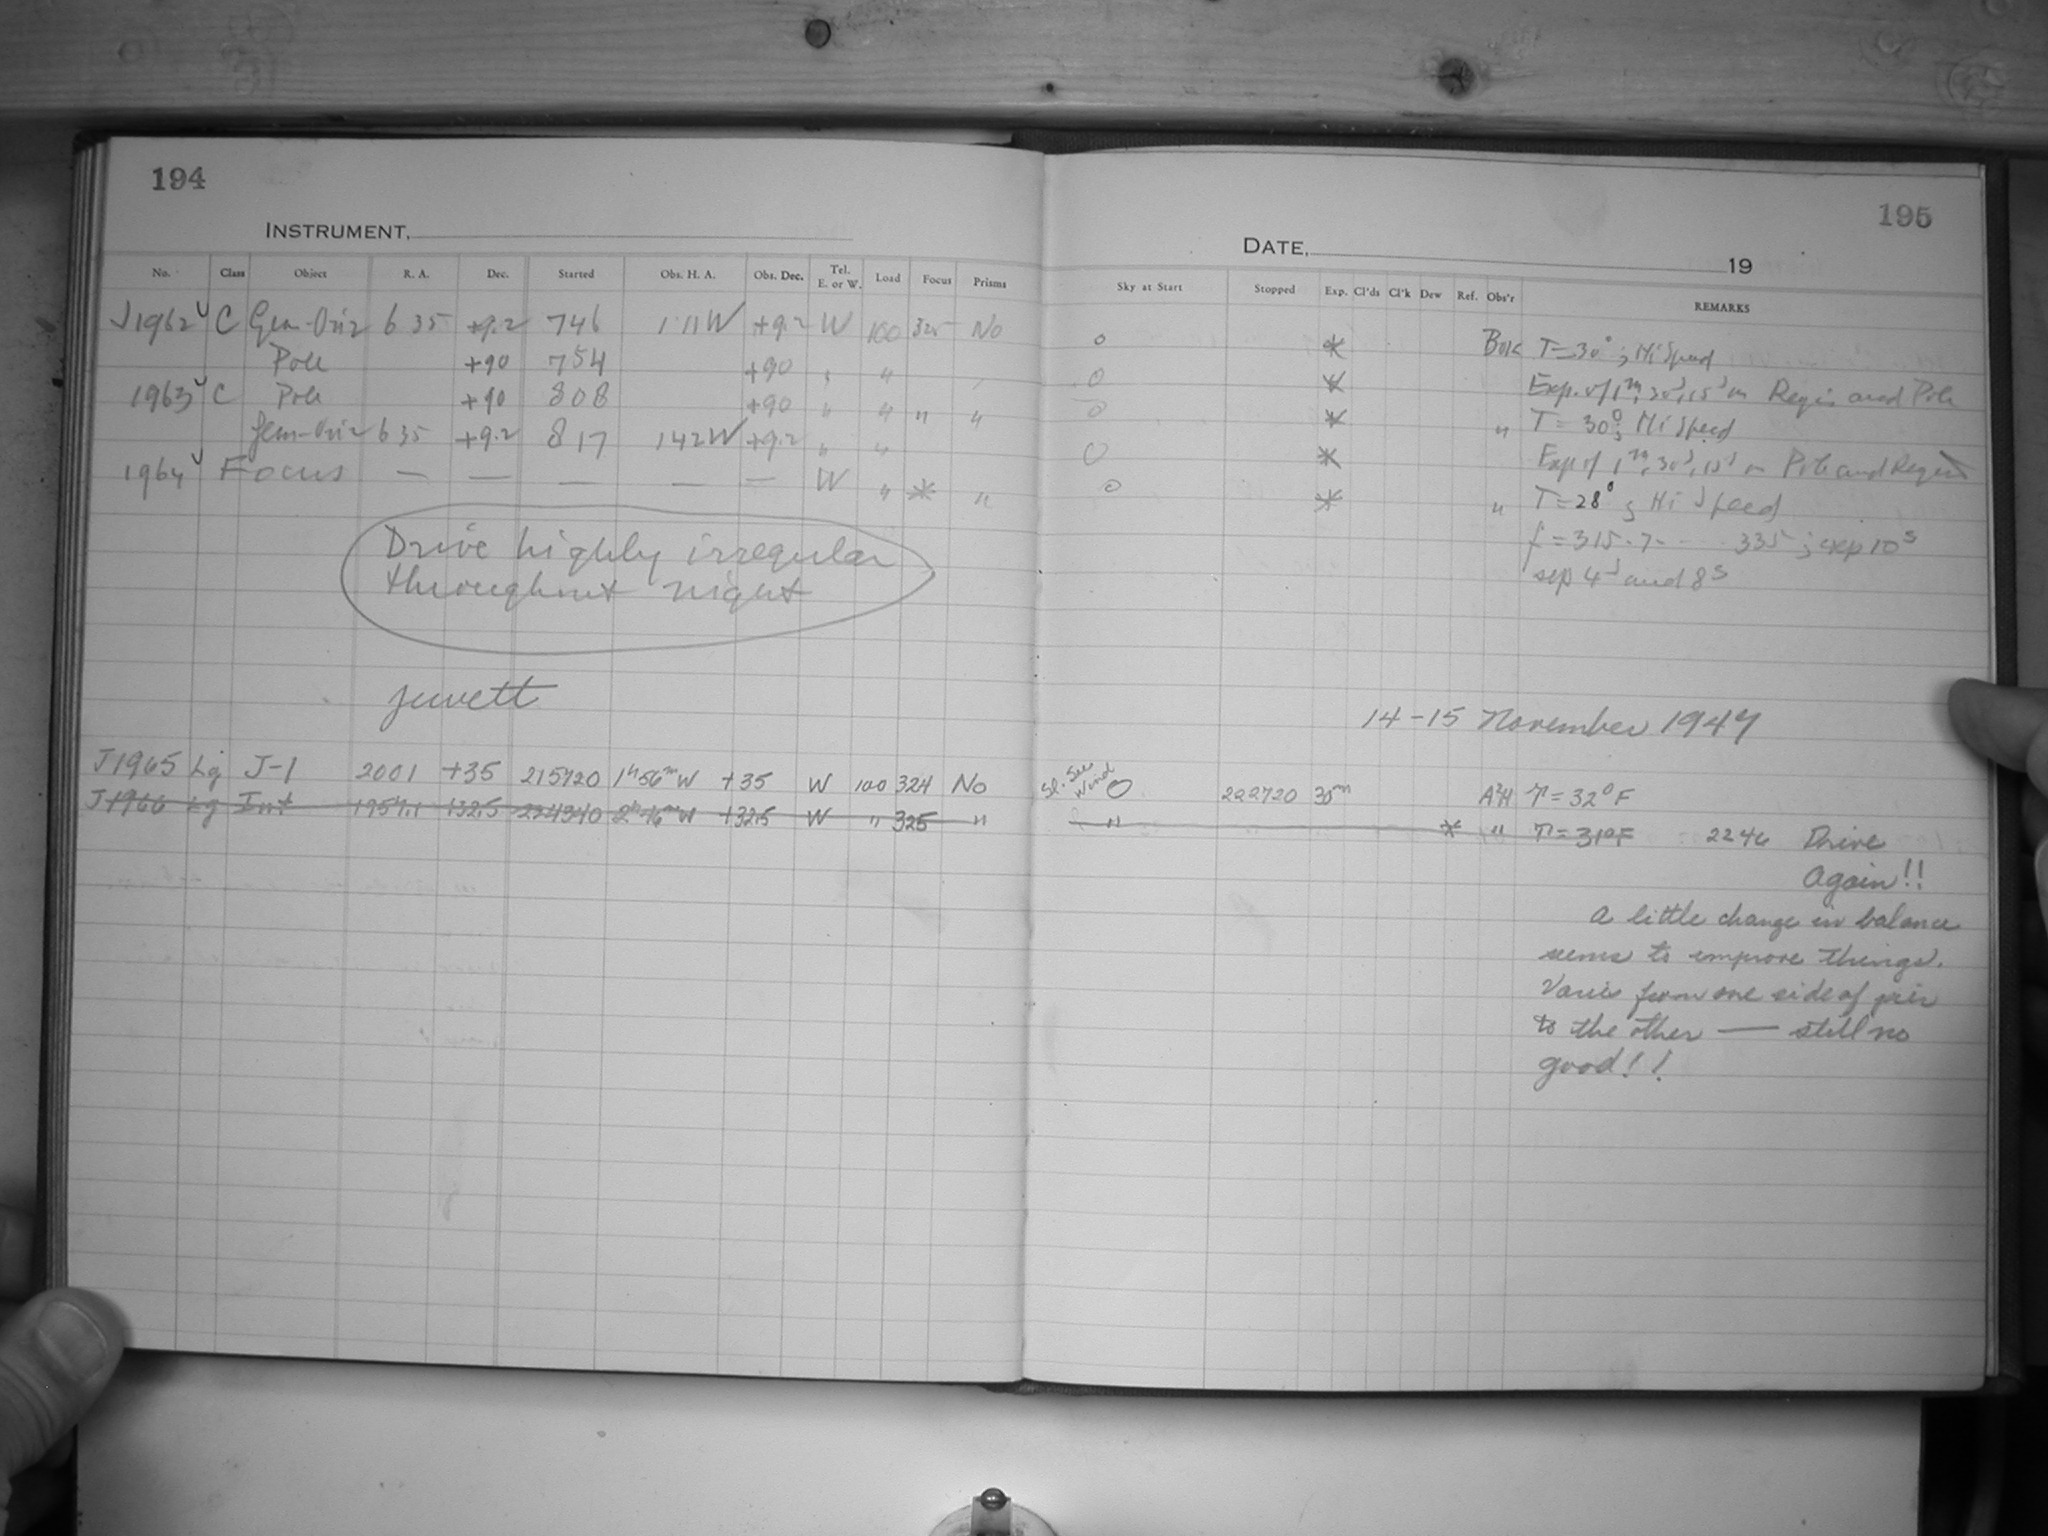 194
INSTRUMENT,
No. Class Object R. A. Dec. Started Obs. H. A. Obs. Dec. Tel. E. or W. Load Focus Prisms
J1962 √ C Gem-Ori 6 35 +9.2 746 1 11 W +9.2 W 100 325 No
Pole +90 754 +90 " "
1963 √ C Pole +90 808 +90 " " " "
Gem-Ori 6 35 +9.2 817 1 42 W +9.2 " "
1964 √ Focus — — — — — W " * "
Drive highly irregular
throughout night
Jewett
J1965 Lg J-1 2001 +35 215720 1h56mW +35 W 100 324 No
J1966 Lg Int 1957.1 +32.5 224340 2h46mW +32.5 W " 325 "
195
DATE, 19
Sky at Start Stopped Exp. Cl'ds Cl'k Dew Ref. Obs'r REMARKS
0 * Bok T=30°; Hi Speed
0 * Exp. of 1m, 30s, 15s on Region and Pole
0 * " T = 30°; Hi Speed
0 * Exp of 1m, 30s, 15s on Pole and Region
0 * " T=28°; Hi Speed
f = 315.7 - - - - 335; exp 10s
sep 4s and 8s
14-15 November 1947
Sl. See
Wind 0 222720 30m T=32°F
" * " T=31°F 2246 Drive
Again!!
A little change in balance
seems to improve things.
Varies from one side of pier
to the other — still no
good!!